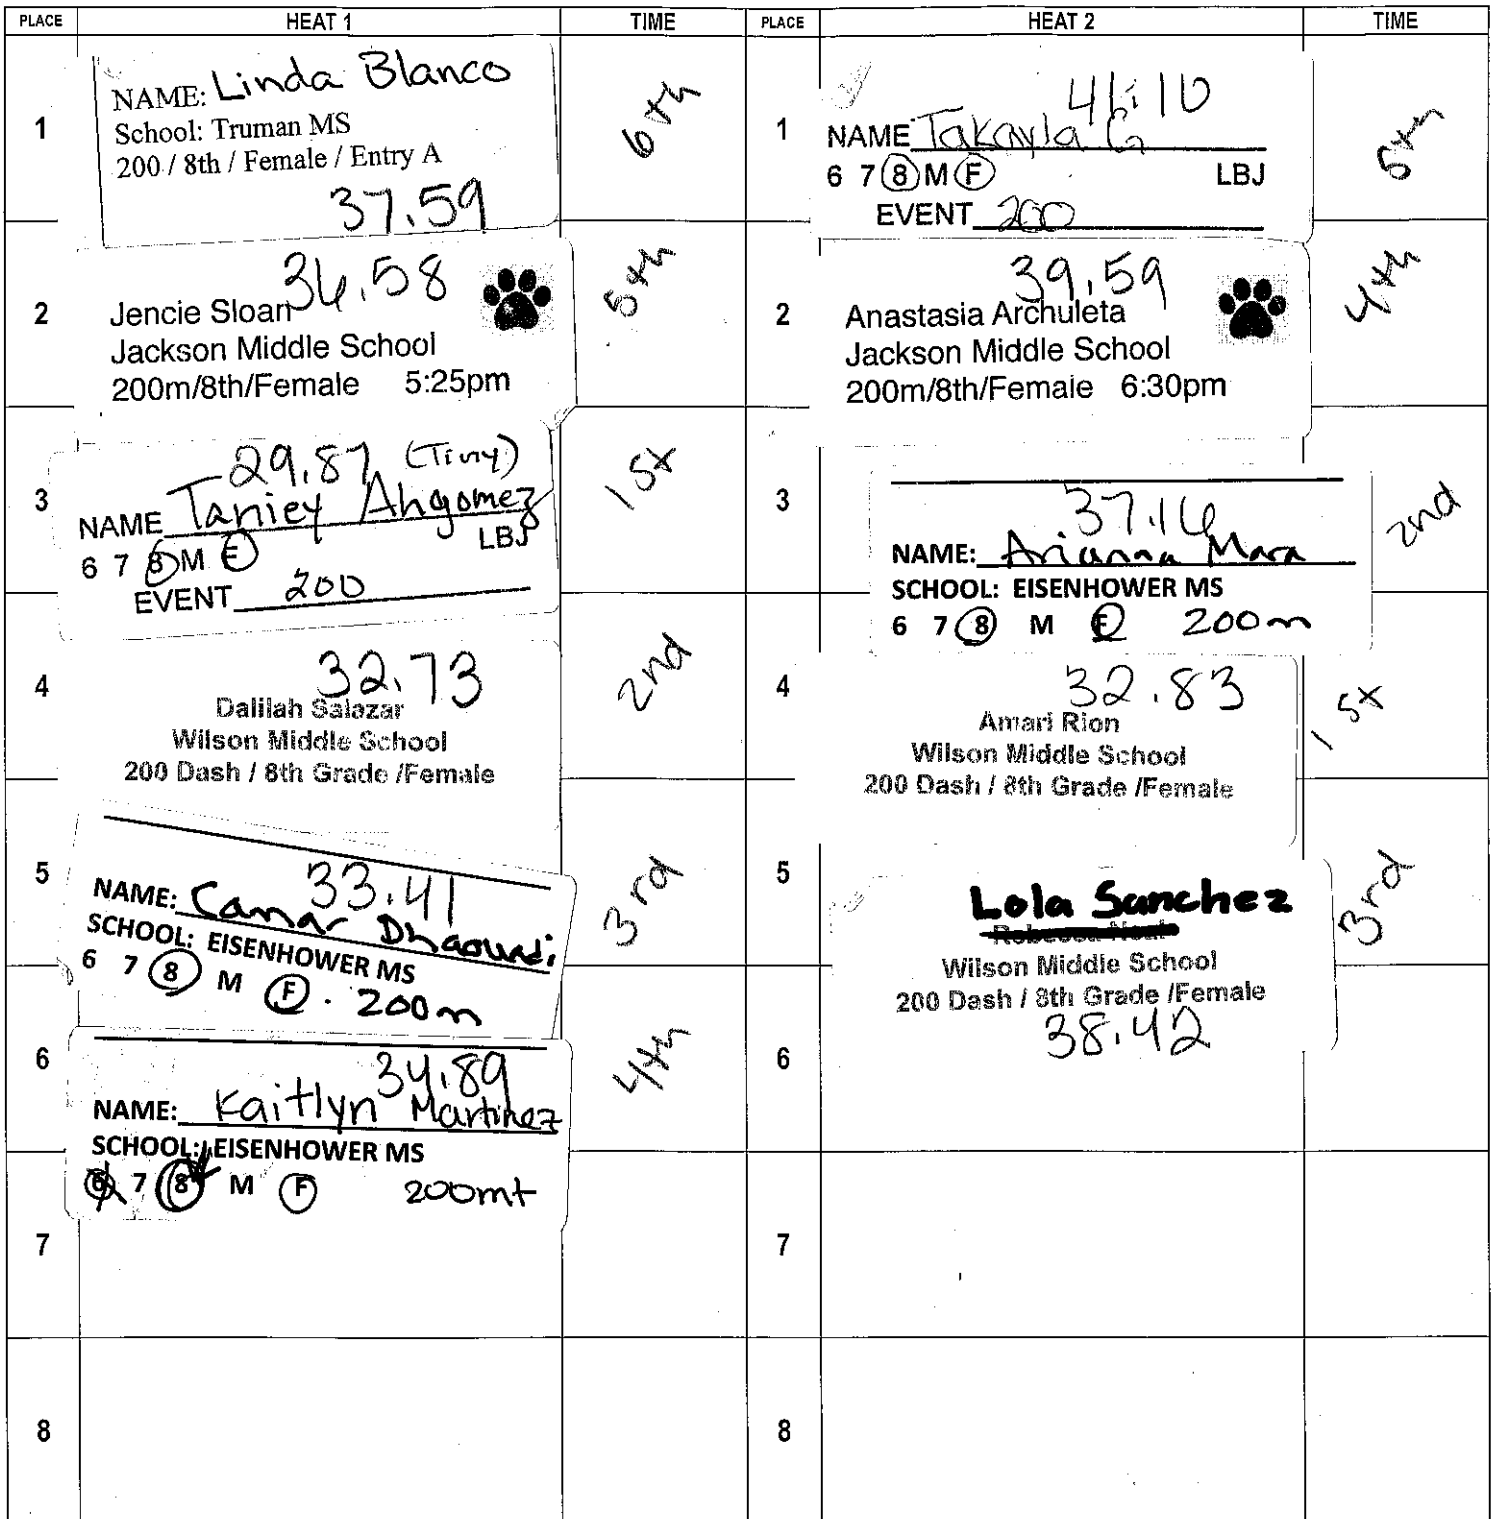 PLACE HEAT 1 TIME PLACE HEAT 2 TIME
1
NAME: Linda Blanco
School: Truman MS
200 / 8th / Female / Entry A
37.59
6th
2
36.58
Jencie Sloan
Jackson Middle School
200m/8th/Female 5:25pm
5th
3
29.87 (Tiny)
NAME Taniey Ahgomez
6 7 8 M F LBJ
EVENT 200
1st
4
32.73
Dalilah Salazar
Wilson Middle School
200 Dash / 8th Grade /Female
2nd
5
33.41
NAME: Camar Dhaouadi
SCHOOL: EISENHOWER MS
6 7 8 M F 200m
3rd
6
34.89
NAME: Kaitlyn Martinez
SCHOOL: EISENHOWER MS
6 7 8 M F 200mt
4th
7
8
1
41.10
NAME Takayla G
6 7 8 M F LBJ
EVENT 200
5th
2
39.59
Anastasia Archuleta
Jackson Middle School
200m/8th/Female 6:30pm
4th
3
37.16
NAME: Arianna Mara
SCHOOL: EISENHOWER MS
6 7 8 M F 200m
2nd
4
32.83
Amari Rion
Wilson Middle School
200 Dash / 8th Grade /Female
1st
5
Lola Sanchez
Wilson Middle School
200 Dash / 8th Grade /Female
38.42
3rd
6
7
8